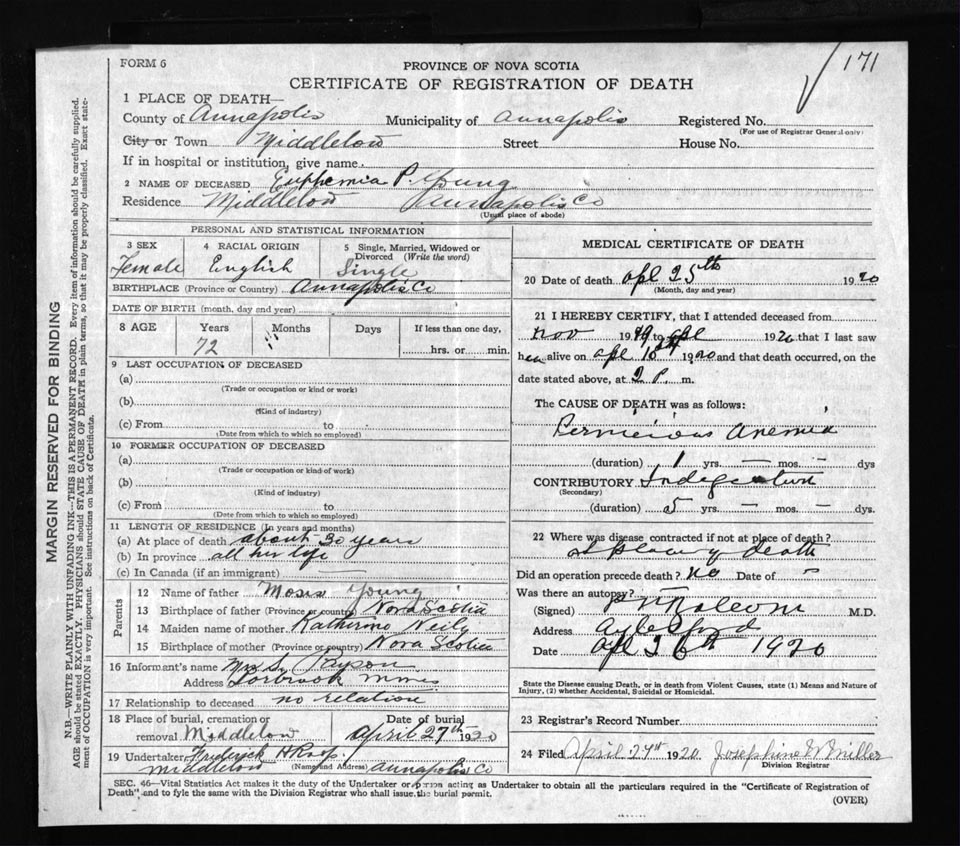 FORM 6
171
PROVINCE OF NOVA SCOTIA
CERTIFICATE OF REGISTRATION OF DEATH
MARGIN RESERVED FOR BINDING
N.B.—WRITE PLAINLY WITH UNFADING INK—THIS IS A PERMANENT RECORD. Every item of information should be carefully supplied.
AGE should be stated EXACTLY. PHYSICIANS should STATE CAUSE OF DEATH in plain terms, so that it may be properly classified. Exact state-
ment of OCCUPATION is very important. See instructions on back of Certificate.
1 PLACE OF DEATH—
County of Annapolis Municipality of Annapolis Registered No.
(For use of Registrar General only)
City or Town Middleton Street House No.
If in hospital or institution, give name.
2 NAME OF DECEASED Euphemia P. Young
Residence Middleton Annapolis Co
(Usual place of abode)
PERSONAL AND STATISTICAL INFORMATION
3 SEX 4 RACIAL ORIGIN 5 Single, Married, Widowed or
Divorced (Write the word)
Female English Single
BIRTHPLACE (Province or Country) Annapolis Co
DATE OF BIRTH (month, day and year)
8 AGE Years Months Days If less than one day,
72 " hrs. or min.
9 LAST OCCUPATION OF DECEASED
(a)
(Trade or occupation or kind or work)
(b)
(Kind of industry)
(c) From to
(Date from which to which so employed)
10 FORMER OCCUPATION OF DECEASED
(a)
(Trade or occupation or kind of work)
(b)
(Kind of industry)
(c) From to
(Date from which to which so employed)
11 LENGTH OF RESIDENCE (In years and months)
(a) At place of death about 30 years
(b) In province all her life
(c) In Canada (if an immigrant)
Parents
12 Name of father Moses Young
13 Birthplace of father (Province or country) Nova Scotia
14 Maiden name of mother Neily
15 Birthplace of mother (Province or country) Nova Scotia
16 Informant's name Mrs S.
Address Torbrook Mines
17 Relationship to deceased no relation
18 Place of burial, cremation or Date of burial
removal Middleton April 27th 1920
19 Undertaker Frederick H Roop
(Name and Address)
Middleton Annapolis Co
MEDICAL CERTIFICATE OF DEATH
20 Date of death Apl 25th 1920
(Month, day and year)
21 I HEREBY CERTIFY, that I attended deceased from
Nov 1919 to Apl 1920 that I last saw
her alive on Apl 1920 and that death occurred, on the
date stated above, at 2 P. m.
The CAUSE OF DEATH was as follows:
Pernicious Anemia
(duration) 1 yrs. — mos. — dys
CONTRIBUTORY Indigestion
(Secondary)
(duration) 5 yrs. — mos. — dys.
22 Where was disease contracted if not at place of death?
at place of death
Did an operation precede death? No Date of —
Was there an autopsy?
(Signed) M.D.
Address Aylesford
Date Apl 26th 1920
State the Disease causing Death, or in death from Violent Causes, state (1) Means and Nature of
Injury, (2) whether Accidental, Suicidal or Homicidal.
23 Registrar's Record Number
24 Filed April 1920 Josephine Miller
Division Registrar
SEC. 46—Vital Statistics Act makes it the duty of the Undertaker or person acting as Undertaker to obtain all the particulars required in the "Certificate of Registration of
Death" and to fyle the same with the Division Registrar who shall issue the burial permit.
(OVER)